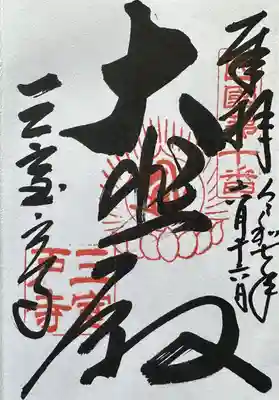 奉拝
西國第十番
令和七年
月十六日
大悲殿
三室戸寺
三室
戸寺